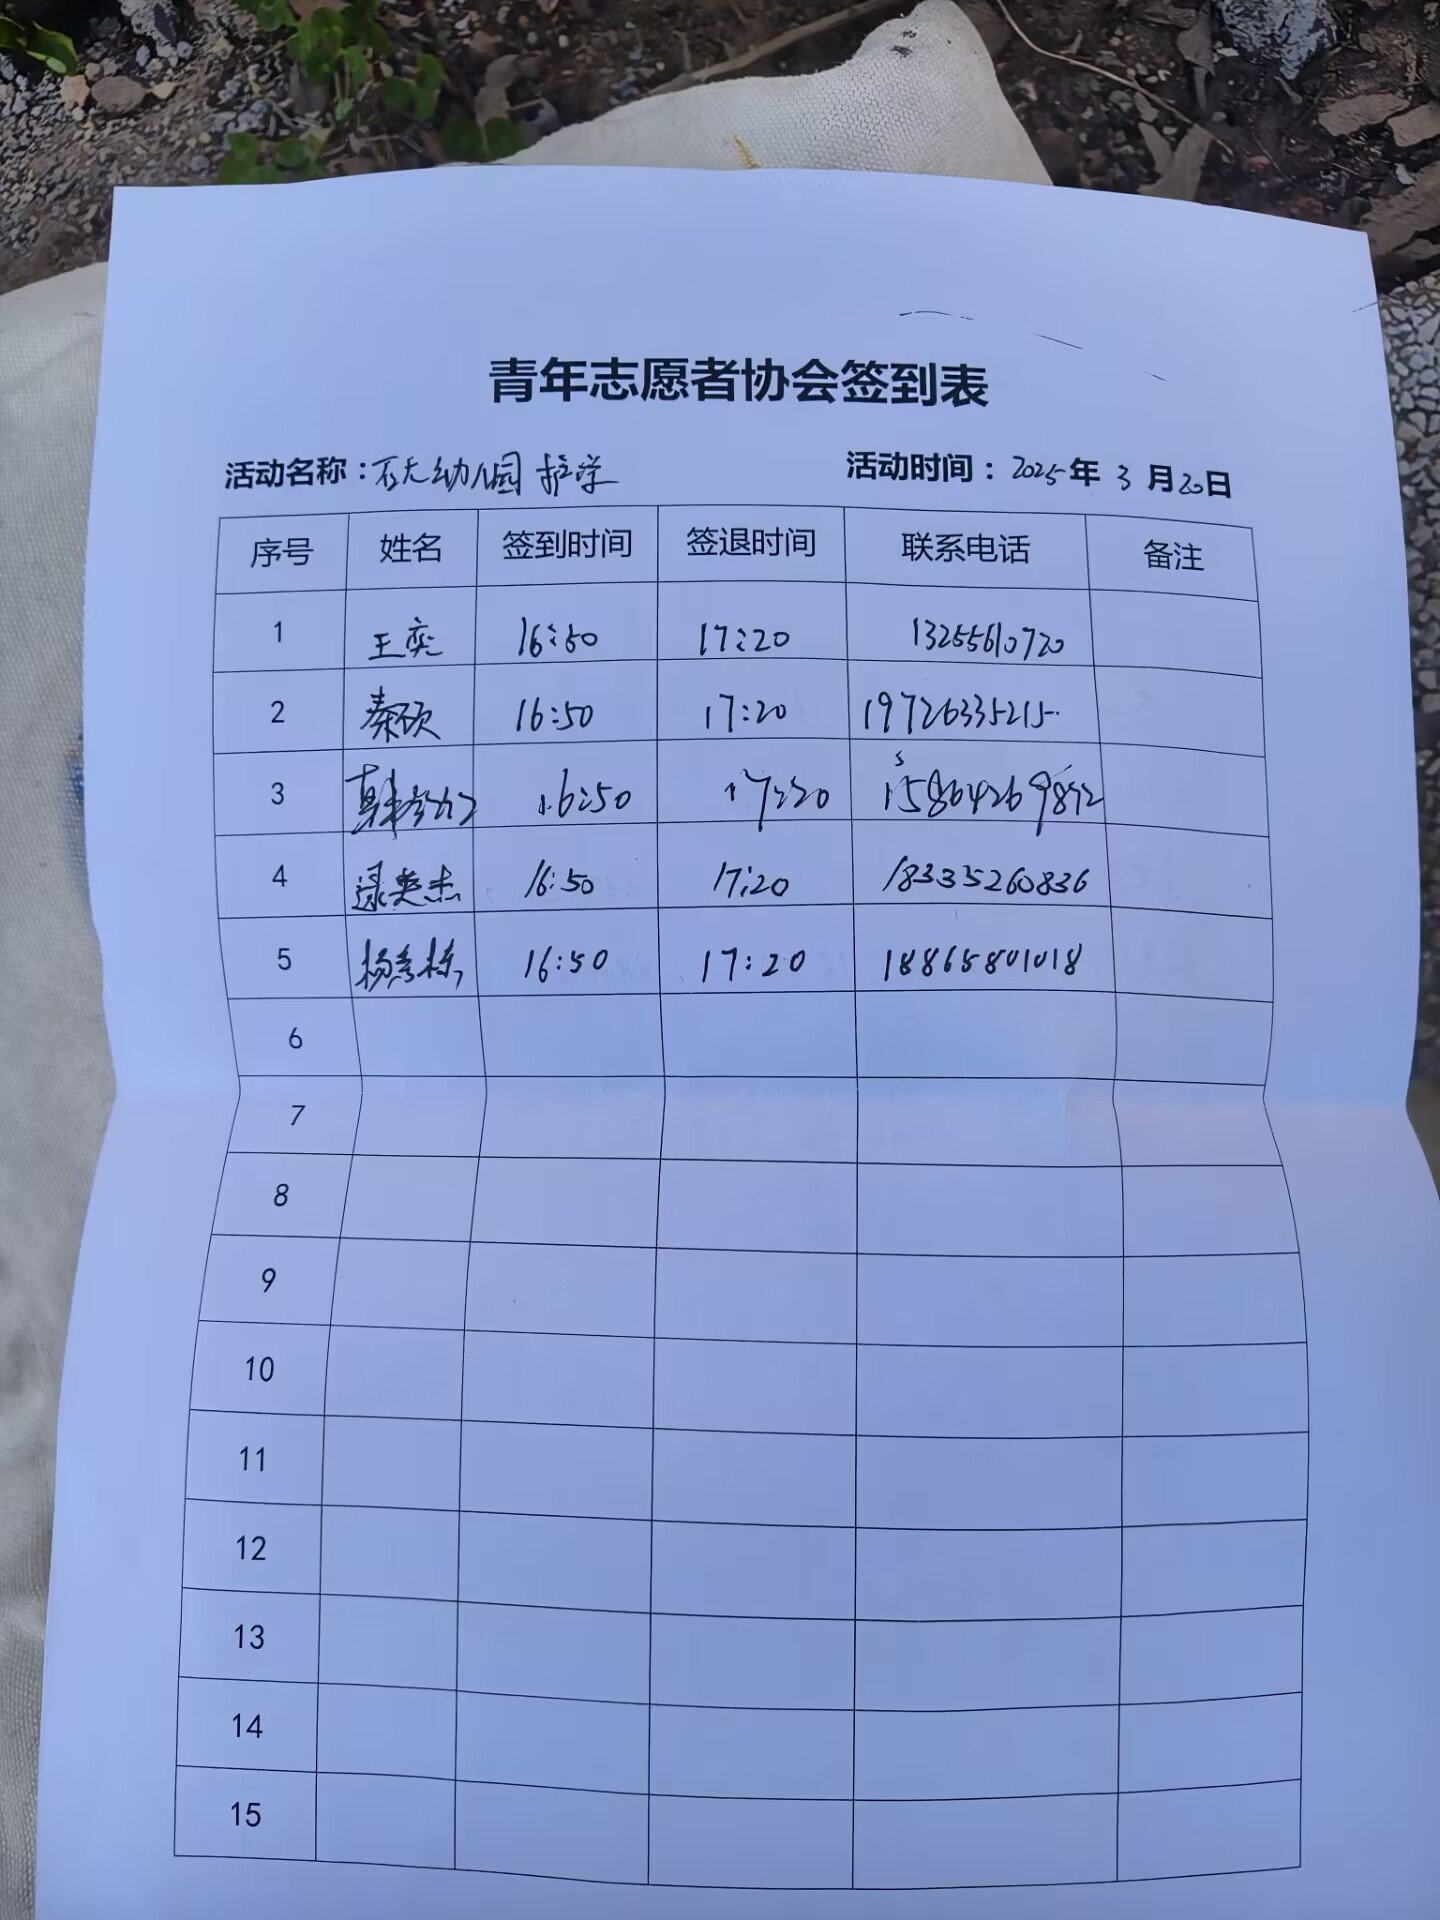 青年志愿者协会签到表
活动名称：石大幼儿园 护学 活动时间：2025年 3 月 20日
序号 姓名 签到时间 签退时间 联系电话 备注
1 王奕 16:50 17:20 13255610720
2 秦硕 16:50 17:20 19726335215
3 韩 16:50 17:20 15864269872
4 逯英杰 16:50 17:20 18335260836
5 杨彦栋 16:50 17:20 18865801018
6
7
8
9
10
11
12
13
14
15